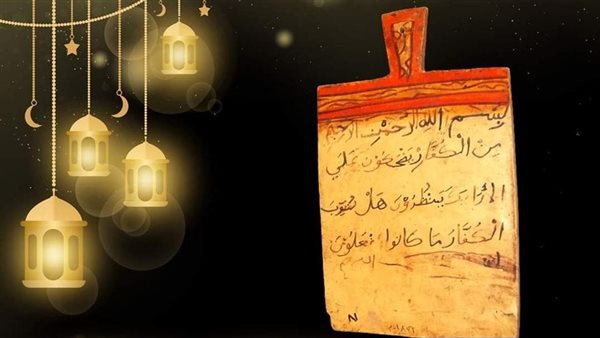 بِسْمِ اللهِ الرَّحْمَنِ الرَّحِيمِ
مِنَ الْكُفَّارِ يَضْحَكُونَ عَلَى
الْأَرَائِكِ يَنظُرُونَ هَلْ ثُوِّبَ
الْكُفَّارُ مَا كَانُوا يَفْعَلُونَ
N